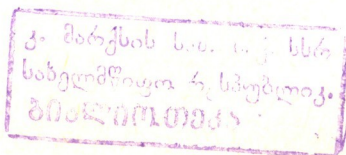 კ. მარქსის სახ. ს. ს. სსრ
სახელმწიფო რესპუბლიკ.
ბიბლიოთეკა